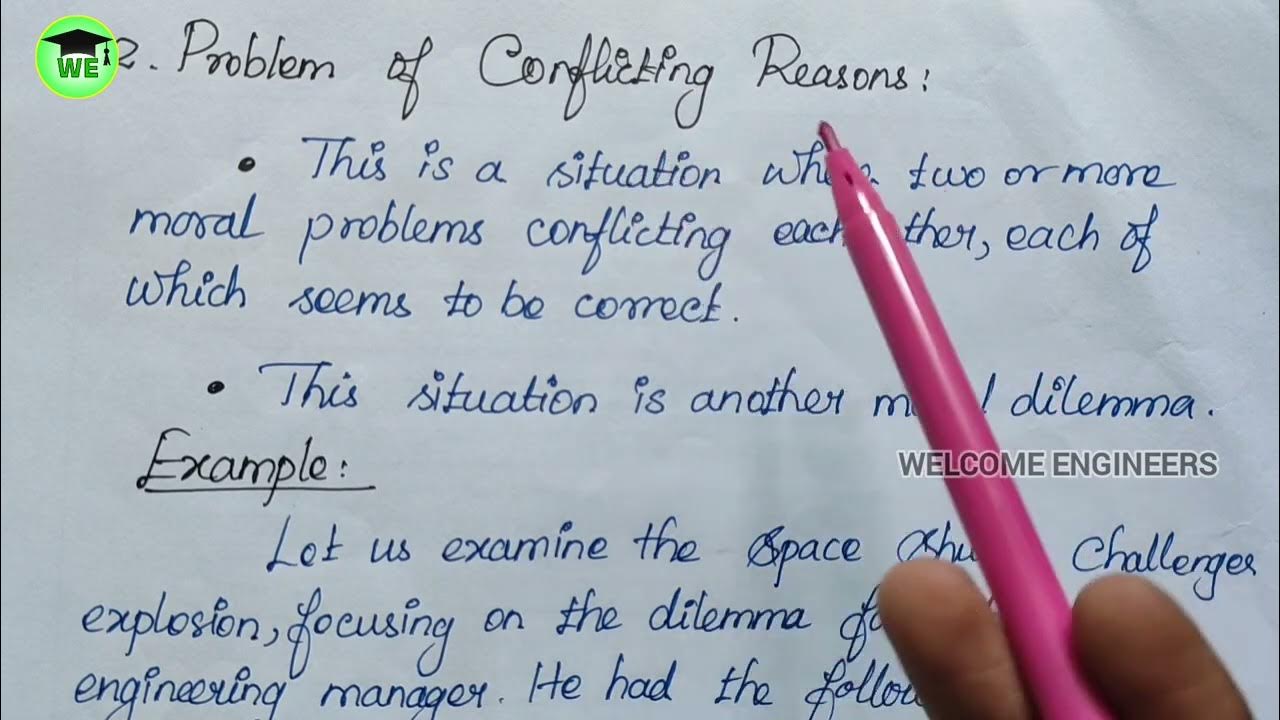 WE
2. Problem of Conflicting Reasons:
• This is a situation two or more
moral problems conflicting each, each of
which seems to be correct.
• This situation is another dilemma.
WELCOME ENGINEERS
Example:
Let us examine the Space Challenger
explosion, focusing on the dilemma
engineering manager. He had the